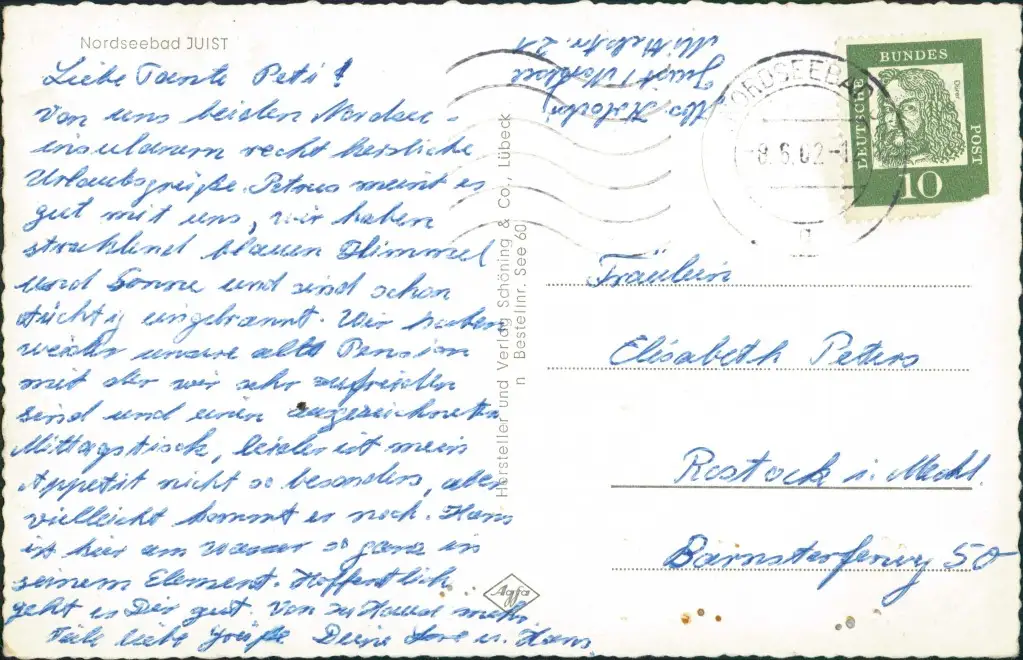 Nordseebad JUIST
Liebe Tante Peti!
Von uns beiden Nordsee-
insulanern recht herzliche
Urlaubsgrüße. Petrus meint es
gut mit uns, wir haben
strahlend blauen Himmel
und Sonne und sind schon
tüchtig eingebrannt. Wir haben
wieder unsere alte Pension
mit der wir sehr zufrieden
sind und einen ausgezeichneten
Mittagstisch, leider ist mein
Appetit nicht so besonders, aber
vielleicht kommt er noch. Hans
ist hier am Wasser so ganz in
seinem Element. Hoffentlich
geht es Dir gut. Von zu Hause mehr.
Viele liebe Grüße Deine Lore u. Hans
Hersteller und Verlag Schöning & Co., Lübeck
n Bestellnr. See 60
Agfa
Juist / Nordsee
Mittelstr. 21
NORDSEEBAD
-8.6.62-1
DEUTSCHE
BUNDES
POST
Dürer
10
Fräulein
Elisabeth Peters
Rostock i. Meckl.
Barnstorferweg 50